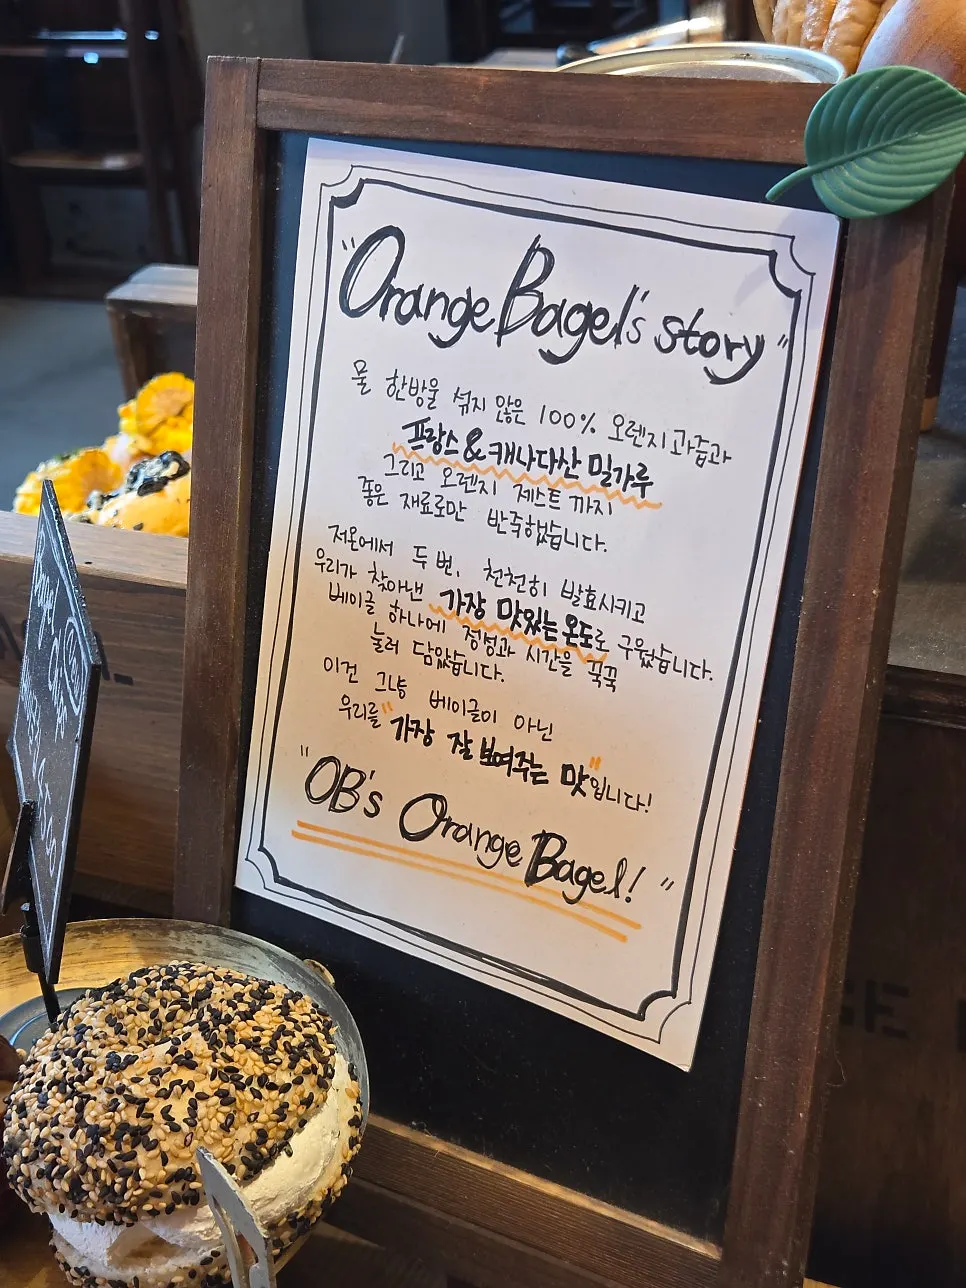 "Orange Bagel's story"
물 한방울 섞지 않은 100% 오렌지과즙과
프랑스 & 캐나다산 밀가루
그리고 오렌지 제스트까지
좋은 재료로만 반죽했습니다.
저온에서 두 번, 천천히 발효시키고
우리가 찾아낸 가장 맛있는 온도로 구웠습니다.
베이글 하나에 정성과 시간을 꾹꾹
눌러 담았습니다.
이건 그냥 베이글이 아닌
우리를 "가장 잘 보여주는 맛"입니다!
"OB's Orange Bagel!"